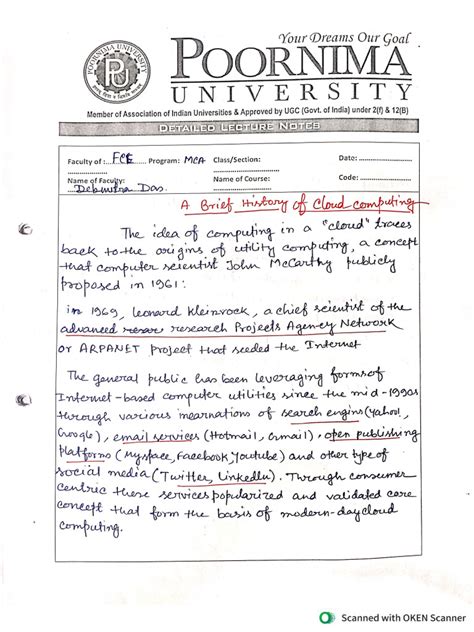 Your Dreams Our Goal
POORNIMA UNIVERSITY
PU
POORNIMA
UNIVERSITY
Member of Association of Indian Universities & Approved by UGC (Govt. of India) under 2(f) & 12(B)
DETAILED LECTURE NOTES
Faculty of : FCE Program: MCA Class/Section: Date:
Name of Faculty: Name of Course: Code:
Debmitra Das.
A Brief History of Cloud computing
The idea of computing in a "cloud" traces
back to the origins of utility computing, a concept
that computer scientist John McCarthy publicly
proposed in 1961:
in 1969, Leonard Kleinrock, a chief scientist of the
advanced research Projects Agency Network
or ARPANET project that seeded the Internet
The general public has been leveraging forms of
Internet-based computer utilities since the mid-1990s
through various incarnations of search engins (Yahoo!,
Google), email services (Hotmail, Gmail), open publishing
platforms (Myspace, Facebook, Youtube) and other type of
social media (Twitter, LinkedIn). Through consumer
centric these services popularized and validated core
concept that form the basis of modern-day cloud
computing.
Scanned with OKEN Scanner